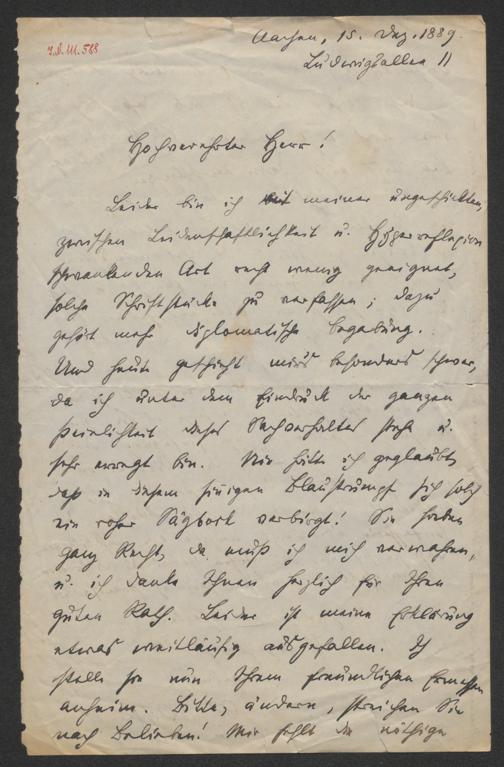 I.N. 111.588
Aachen, 15. Dez. 1889.
Ludwigsallee 11
Hochverehrter Herr!
Leider bin ich mit meiner ungeschickten,
zwischen Leidenschaftlichkeit u.
schwankenden Art recht wenig geeignet,
solche Schriftstücke zu verfassen; dazu
gehört mehr diplomatische Begabung.
Und heute geschieht mir's besonders schwer,
da ich unter dem Eindruck der ganzen
Peinlichkeit dieses Sachverhaltes stehe u.
sehr erregt bin. Nie hätte ich geglaubt,
daß in diesem sinnigen Blaustrumpf sich solch
ein roher verbirgt! Sie haben
ganz Recht, da muß ich mich verwahren,
u. ich danke Ihnen herzlich für Ihren
guten Rath. Leider ist meine Erklärung
etwas weitläufig ausgefallen. Ich
stelle sie nun Ihrem freundlichen Ermessen
anheim. Bitte, ändern, streichen Sie
nach Belieben! Mir fehlt die nöthige